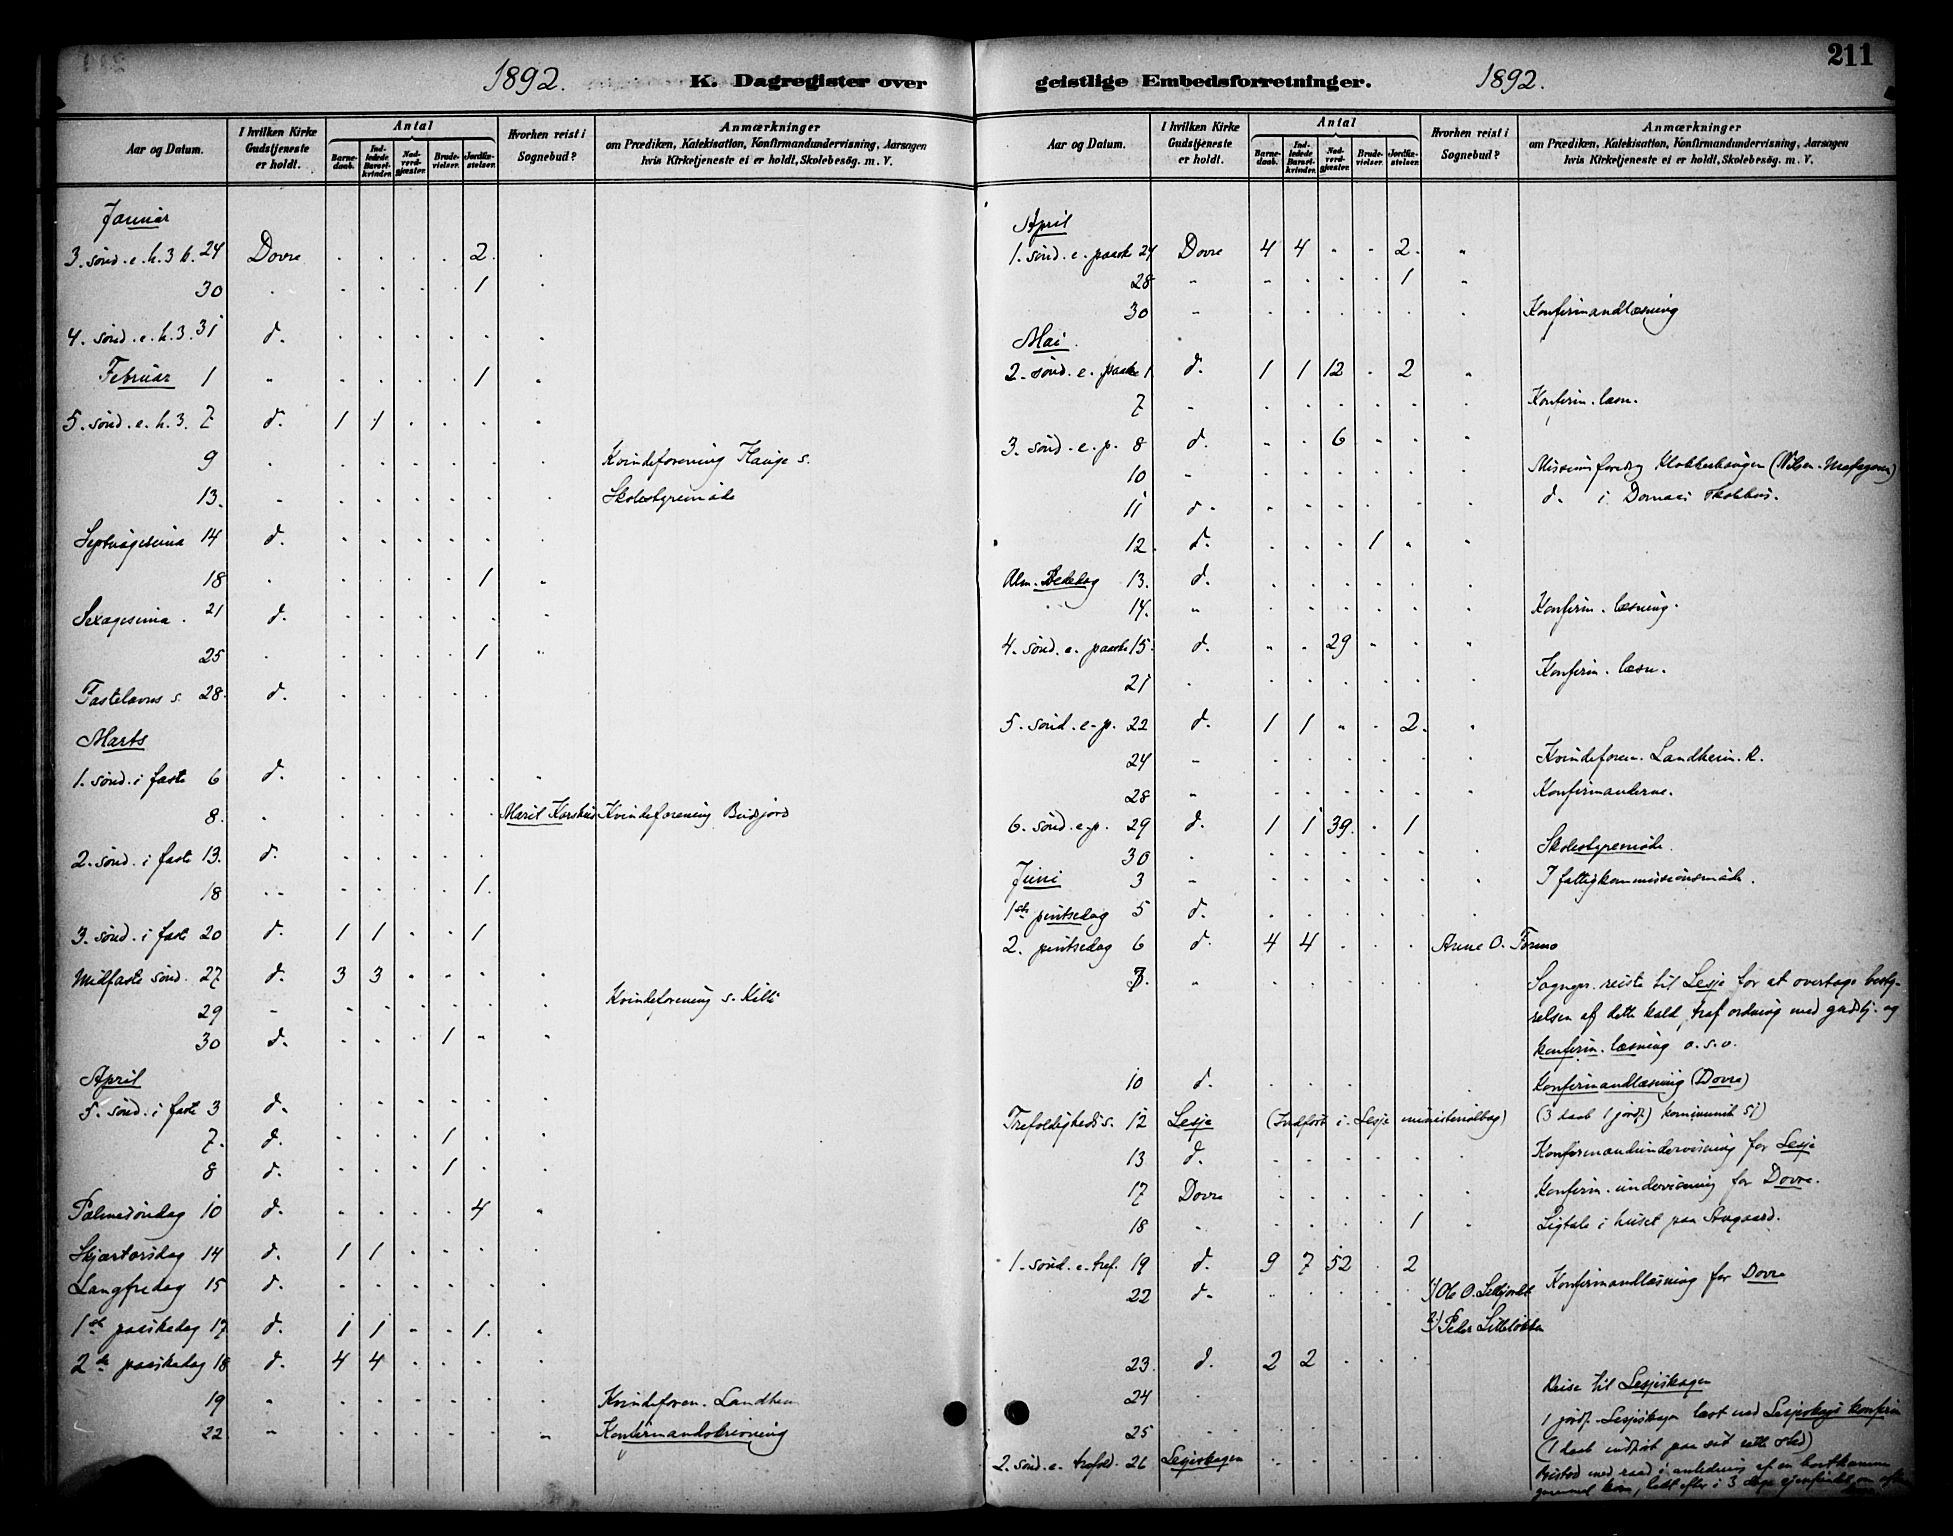 211
1892. K. Dagregister over
Aar og Datum. I hvilken Kirke Gudstjeneste er holdt. Antal Barnedaab. Indledede Barselkvinder. Nadverdgjæster. Brudevielser. Jordfæstelser. Hvorhen reist i Sognebud? Anmærkninger om Prædiken, Katekisation, Konfirmandundervisning, Aarsagen hvis Kirketjeneste ei er holdt, Skolebesög. m. V.
Januar
3. sönd. e. h. 3 k. 24 Dovre . . . . 2. .
30 . . . . . 1 .
4. sönd. e. h. 3. 31 d. . . . . . .
Februar 1 " . . . . 1 .
5. sönd. e. h. 3. 7 d. 1 1 . . . .
9 . . . . . . . Kvindeforening Hauge s.
13. . . . . . . . Skolestyremöde
Septuagesima 14 d. . . . . . .
18 . . . . . 1 .
Sexagesima. 21 d. . . . . . .
25 . . . . . 1 "
Fastelavns s. 28. d. . . . . .
Marts
1. sönd. i faste 6 d. . . . . . "
8. . . . . . . Marit Kvindeforening
2. sönd. i faste 13. d. . . . . .
18 .. . . . . 1.
3. sönd. i faste 20 d. 1 1 . . 1
Midfaste sönd. 27 d. 3 3 . . . .
29 " . . . . . . Kvindeforening s.
30 d. . . . 1 " "
April
5. sönd. i faste 3 d. . . . . . .
7. d. . . . 1 . .
8 d. . . . 1 . .
Palmesöndag 10 d. . . . . 4 "
Skjærtorsdag 14 d. 1 1 . . . .
Langfredag 15 d. . . . . . .
1ste paaskedag 17 d. 1 1 . . 1. .
2de paaskedag 18 d. 4 4 . . . .
19 " . . . . . . Kvindeforen. Landheim
22 " . . . . . " Konfirmandskrivning
geistlige Embedsforretninger. 1892.
Aar og Datum. I hvilken Kirke Gudstjeneste er holdt. Antal Barnedaab. Indledede Barselkvinder. Nadverdgjæster. Brudevielser. Jordfæstelser. Hvorhen reist i Sognebud? Anmærkninger om Prædiken, Katekisation, Konfirmandundervisning, Aarsagen hvis Kirketjeneste ei er holdt, Skolebesög. m. V.
April
1. sönd. e. paaske 24 Dovre 4 4 . . 2. "
28 " . . . . 1 "
30 " . . . . . . Konfirmandlæsning
Mai.
2. sönd. e. paaske 1 d. 1 1 12 . 2 "
7 " . . . . . . Konfirm. læsn.
3. sönd. e. p. 8 d. . . 6 . . .
10 " . . . . . . Missionsforedrag Klokkerhaugen
11 d. . . . . . . d. i skolehus.
12. d. . . . 1 . "
Alm. Bededag 13. d. . . . . . .
14. " . . . . . . Konfirm. læsning.
4. sönd. e. paaske 15. d. . . 29 . . "
21 . . . . . . . Konfirm. læsn.
5. sönd. e. p. 22 d. 1 1 " . 2. "
24 " . . . . . . Kvindeforen. Landheim. R.
28 " . . . . . . Konfirmanderne.
6. sönd. e. p. 29 d. 1 1 39. . 1
30 . . . . . . . Skolestyremöde.
Juni 3 " . . . . . . I fattigkommissionsmöde.
1ste pintsedag 5 d. . . . . .
2. pintsedag 6 d. 4 4 . . . Arne O. Formo
7. " . . . . . . Sognepr. reiste til Lesje for at overtage besty-
relsen af dette kald, traf ordning med gudstj. og
konfirm. læsning o.s.v.
10 d. . . . . Konfirmandlæsning (Dovre)
Trefoldigheds s. 12 Lesje (Indfört i Lesje ministerialbog) (3 daab 1 jordf.) kommunik. 51)
13 d. . . . . . . Konfirmandundervisning for Lesje
17 Dovre . . . . . . Konfirm. undervisning for Dovre.
18 " . . . . 1 " Ligtale i huset paa Aagaard.
1. sönd. e. tref. 19 d. 9 7 52 . 2
22 d. . . . . . 1) Ole O. Konfirmandlæsning for Dovre
2) Peder
23. d. 2 2 . . .
24 . . . . . . Reise til Lesjeskogen
25 . . . 1 jordf. Lesjeskogen læst med Lesjeskogs konfirm.
(1 daab indfört paa sit rette sted)
2. sönd. e. trefold. 26 Lesjeskogen . . . . . Bistod med raad i anledning af en bortkommen
gammel kone, ledt efter i 3 dage